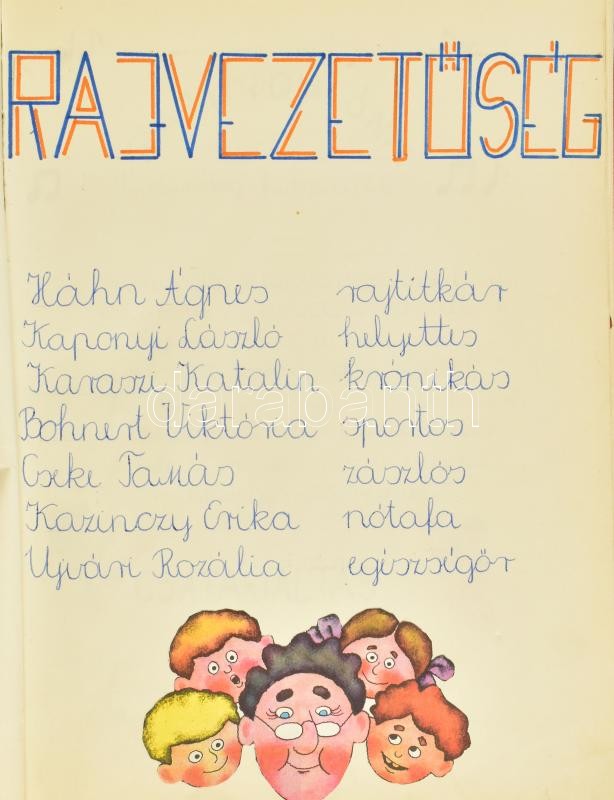 RAJVEZETŐSÉG
Háhn Ágnes rajtitkár
Kaponyi László helyettes
Karaszi Katalin krónikás
darabanth
Bohnert Viktória sportos
Cseke Tamás zászlós
Kazinczy Erika nótafa
Ujvári Rozália egészségőr